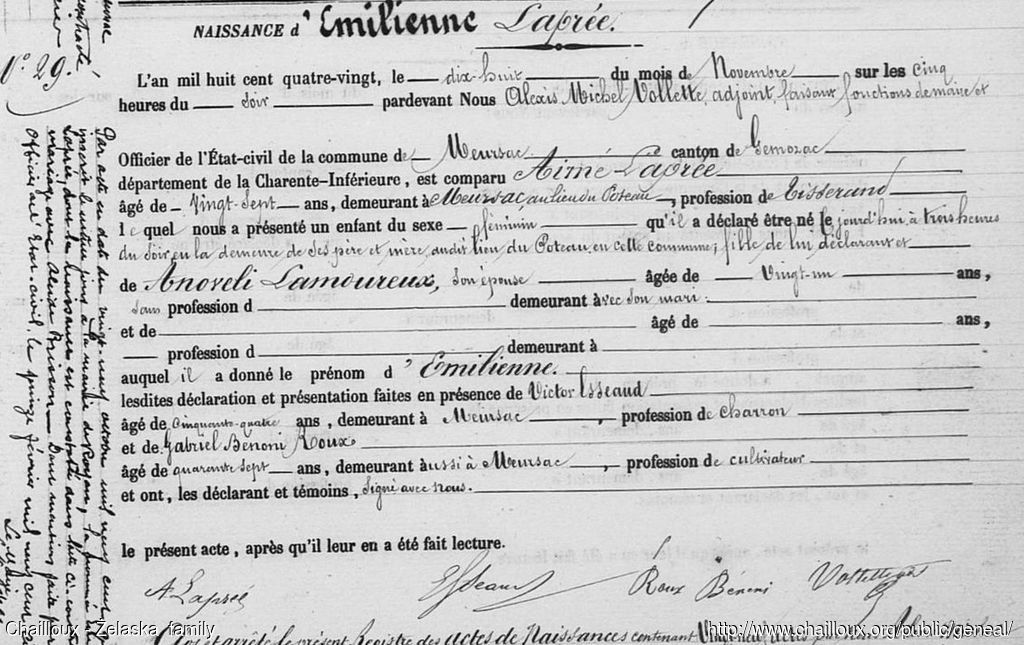 NAISSANCE d'Emilienne Laprée.
N.º 29.
L'an mil huit cent quatre-vingt, le dix-huit du mois de Novembre sur les cinq
heures du soir pardevant Nous Alexis Michel Vollette, adjoint, faisant fonctions de maire et
Officier de l'État-civil de la commune de Meursac canton de Gemozac
département de la Charente-Inférieure, est comparu Aimé Laprée
âgé de Vingt-Sept ans, demeurant à Meursac au lieu du Poteau, profession de Tisserand
lequel nous a présenté un enfant du sexe féminin qu'il a déclaré être né le jourd'hui à trois heures
du soir, en la demeure de ses père et mère, audit lieu du Poteau, en cette commune, fille de lui déclarant et
de Anoveli Lamoureux, son épouse âgée de Vingt-un ans,
sans profession d demeurant avec son mari.
et de âgé de ans,
profession d demeurant à
auquel il a donné le prénom d'Emilienne.
lesdites déclaration et présentation faites en présence de Victor Esseaud
âgé de Cinquante-quatre ans, demeurant à Meursac, profession de Charron
et de Gabriel Benoni Roux
âgé de quarante sept ans, demeurant aussi à Meursac, profession de cultivateur
et ont, les déclarant et témoins, signé avec nous.
le présent acte, après qu'il leur en a été fait lecture.
A Laprée Roux Bénoni
Clos et arrêté le présent Registre des actes de Naissances contenant Vingt-neuf actes par nous
Par acte en date du vingt-neuf
inscrit le même jour à la mairie de
Laprée dont la naissance est constatée dans l'acte ci-contre
mariage avec Brisson Dont mention faite
officier de l'Etat-civil, le quinze février mil neuf cent
Chailloux - Zelaska family
http://www.chailloux.org/public/geneal/